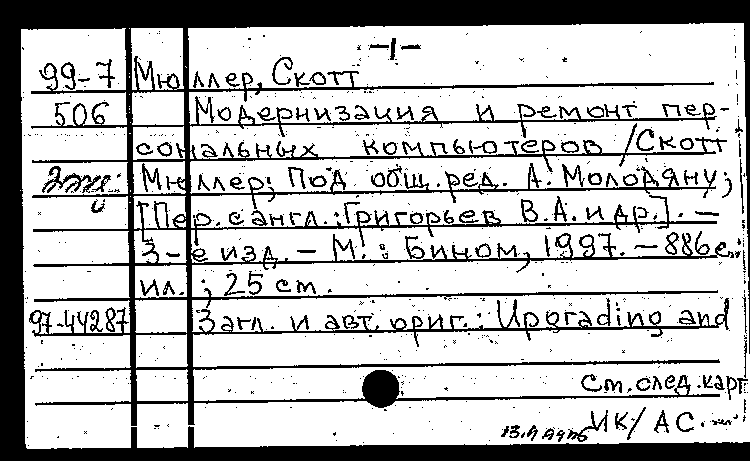 -1-
99-7 Мюллер, Скотт
506 Модернизация и ремонт пер-
сональных компьютеров /Скотт
2 экз. Мюллер; Под общ. ред. А. Молодяну;
[Пер. с англ.: Григорьев В.А. и др.]. —
3-е изд. — М.: Бином, 1997. — 886 с.:
ил.; 25 см.
97-44287 Загл. и авт. ориг.: Upgrading and
См. след. карт
ИК/АС.